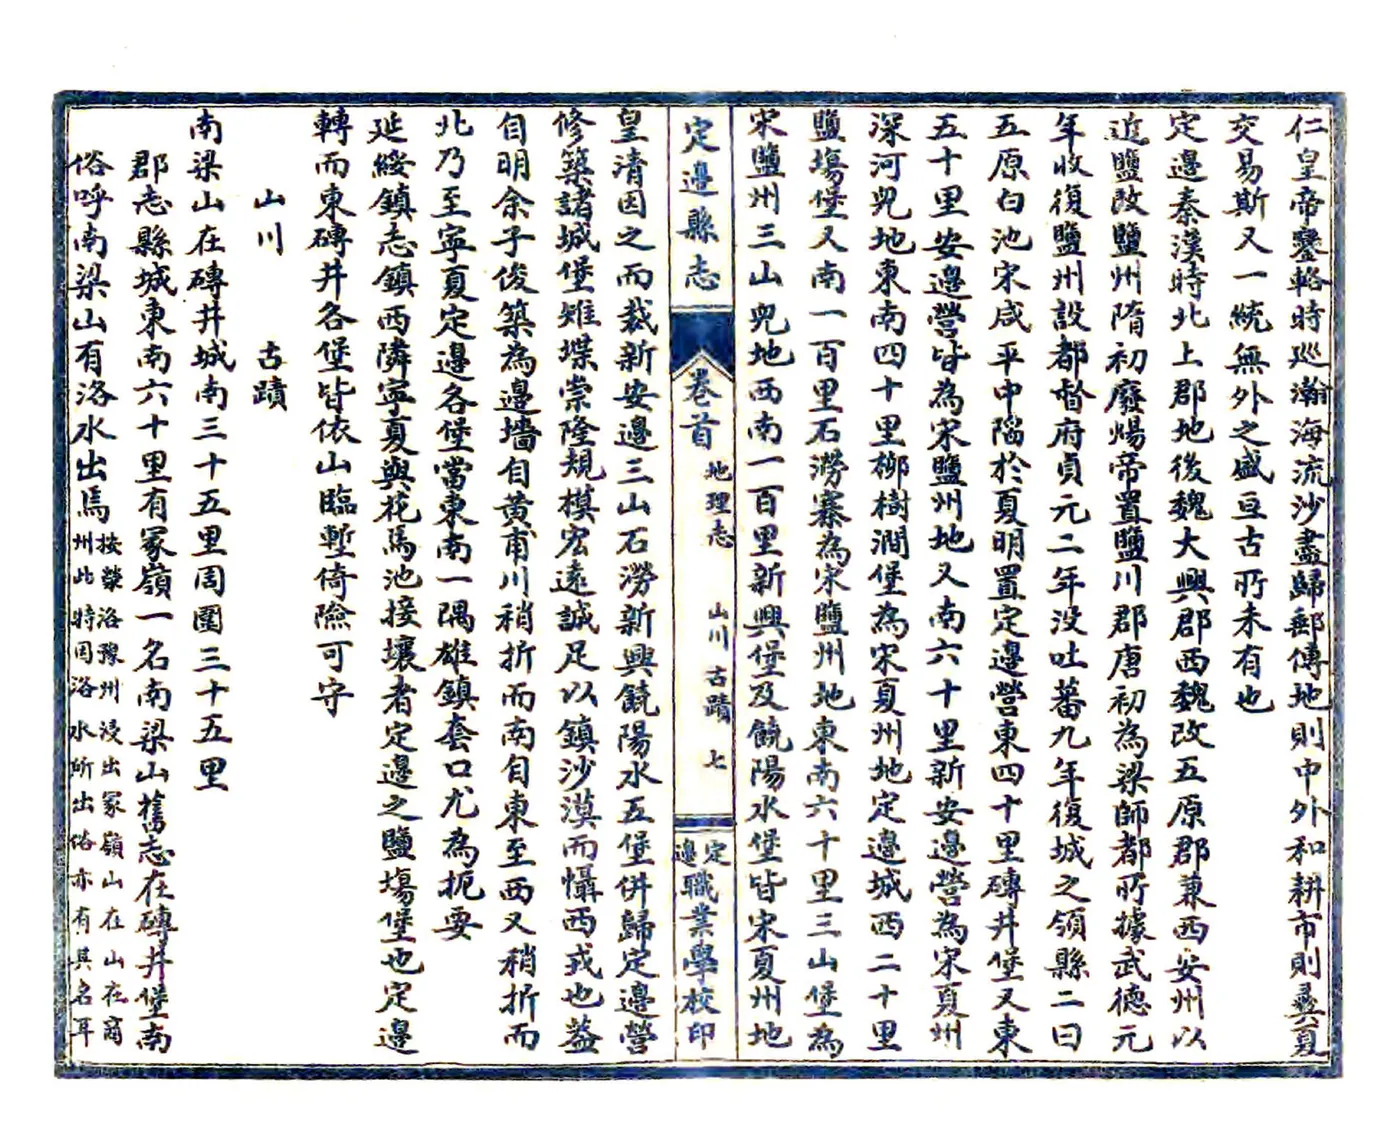 仁皇帝鑾輅時巡瀚海流沙盡歸郵傳地則中外和耕市則彝夏
交易斯又一統無外之盛亘古所未有也
定邊秦漢時北上郡地後魏大興郡西魏改五原郡兼西安州以
近鹽改鹽州隋初廢煬帝置鹽川郡唐初為梁師都所據武德元
年收復鹽州設都督府貞元二年没吐蕃九年復城之領縣二曰
五原白池宋咸平中陷於夏明置定邊營東四十里磚井堡又東
五十里安邊營皆為宋鹽州地又南六十里新安邊營為宋夏州
深河兒地東南四十里柳樹澗堡為宋夏州地定邊城西二十里
鹽塲堡又南一百里石澇寨為宋鹽州地東南六十里三山堡為
宋鹽州三山兒地西南一百里新興堡及饒陽水堡皆宋夏州地
定邊縣志
卷首
地理志
山川古蹟
七
定邊職業學校印
皇清因之而裁新安邊三山石澇新興饒陽水五堡併歸定邊營
修築諸城堡雉堞崇隆規模宏遠誠足以鎮沙漠而懾西戎也蓋
自明余子俊築為邊墻自黃甫川稍折而南自東至西又稍折而
北乃至寧夏定邊各堡當東南一隅雄鎮套口尤為扼要
延綏鎮志鎮西隣寧夏與花馬池接壤者定邊之鹽塲堡也定邊
轉而東磚井各堡皆依山臨塹倚險可守
山川 古蹟
南梁山在磚井城南三十五里周圍三十五里
郡志縣城東南六十里有冢嶺一名南梁山舊志在磚井堡南
俗呼南梁山有洛水出焉
按滎洛豫州浸出冢嶺山在山在商
州此特因洛水所出俗亦有其名耳